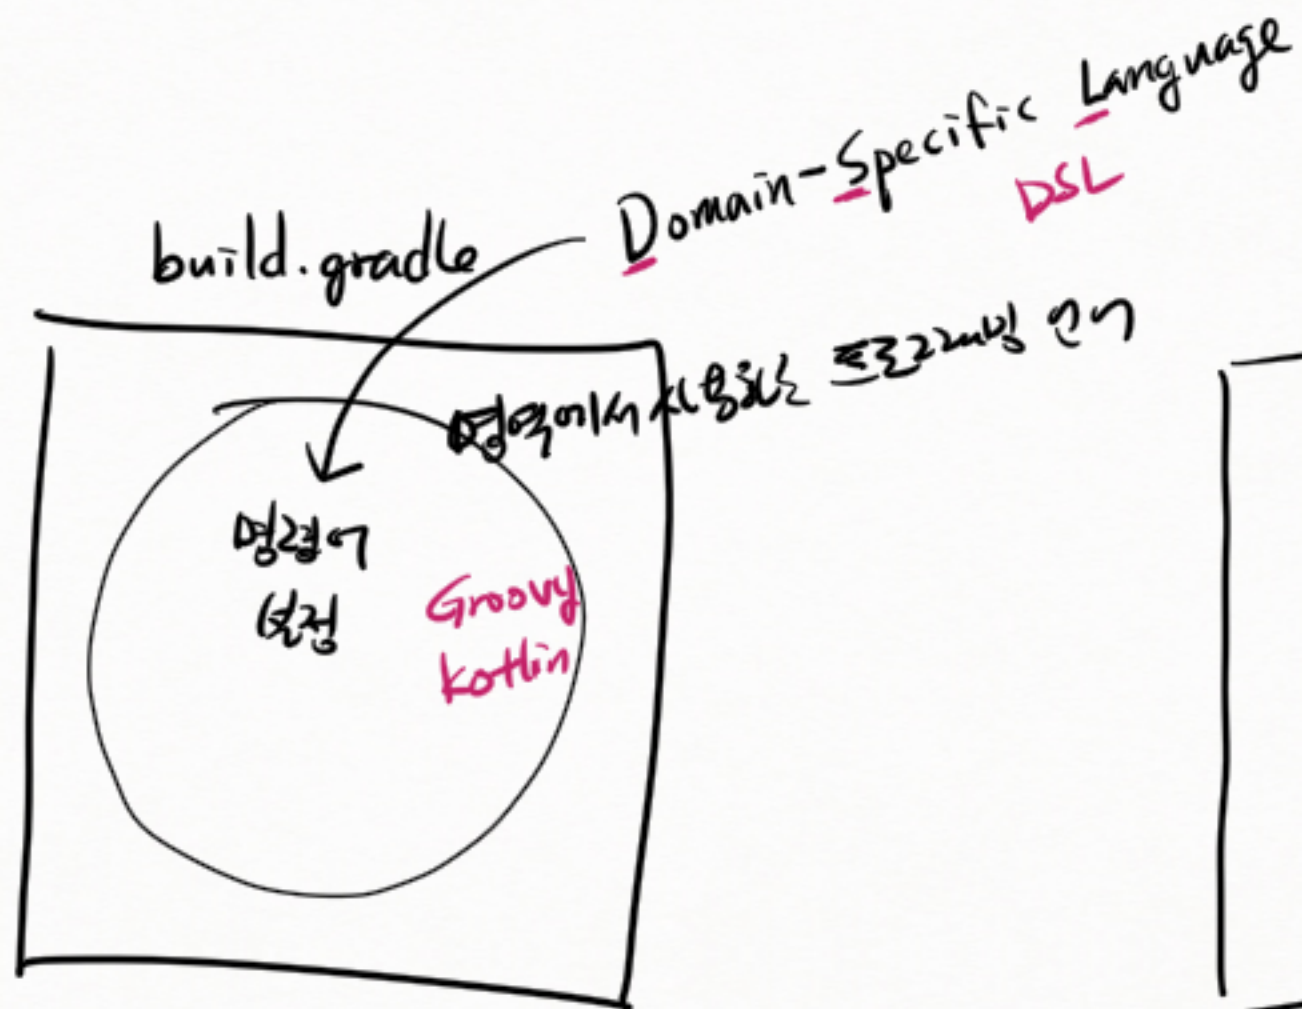 Domain-Specific Language
DSL
build.gradle
영역에서 사용하는 프로그래밍 언어
명령어
설정
Groovy
kotlin